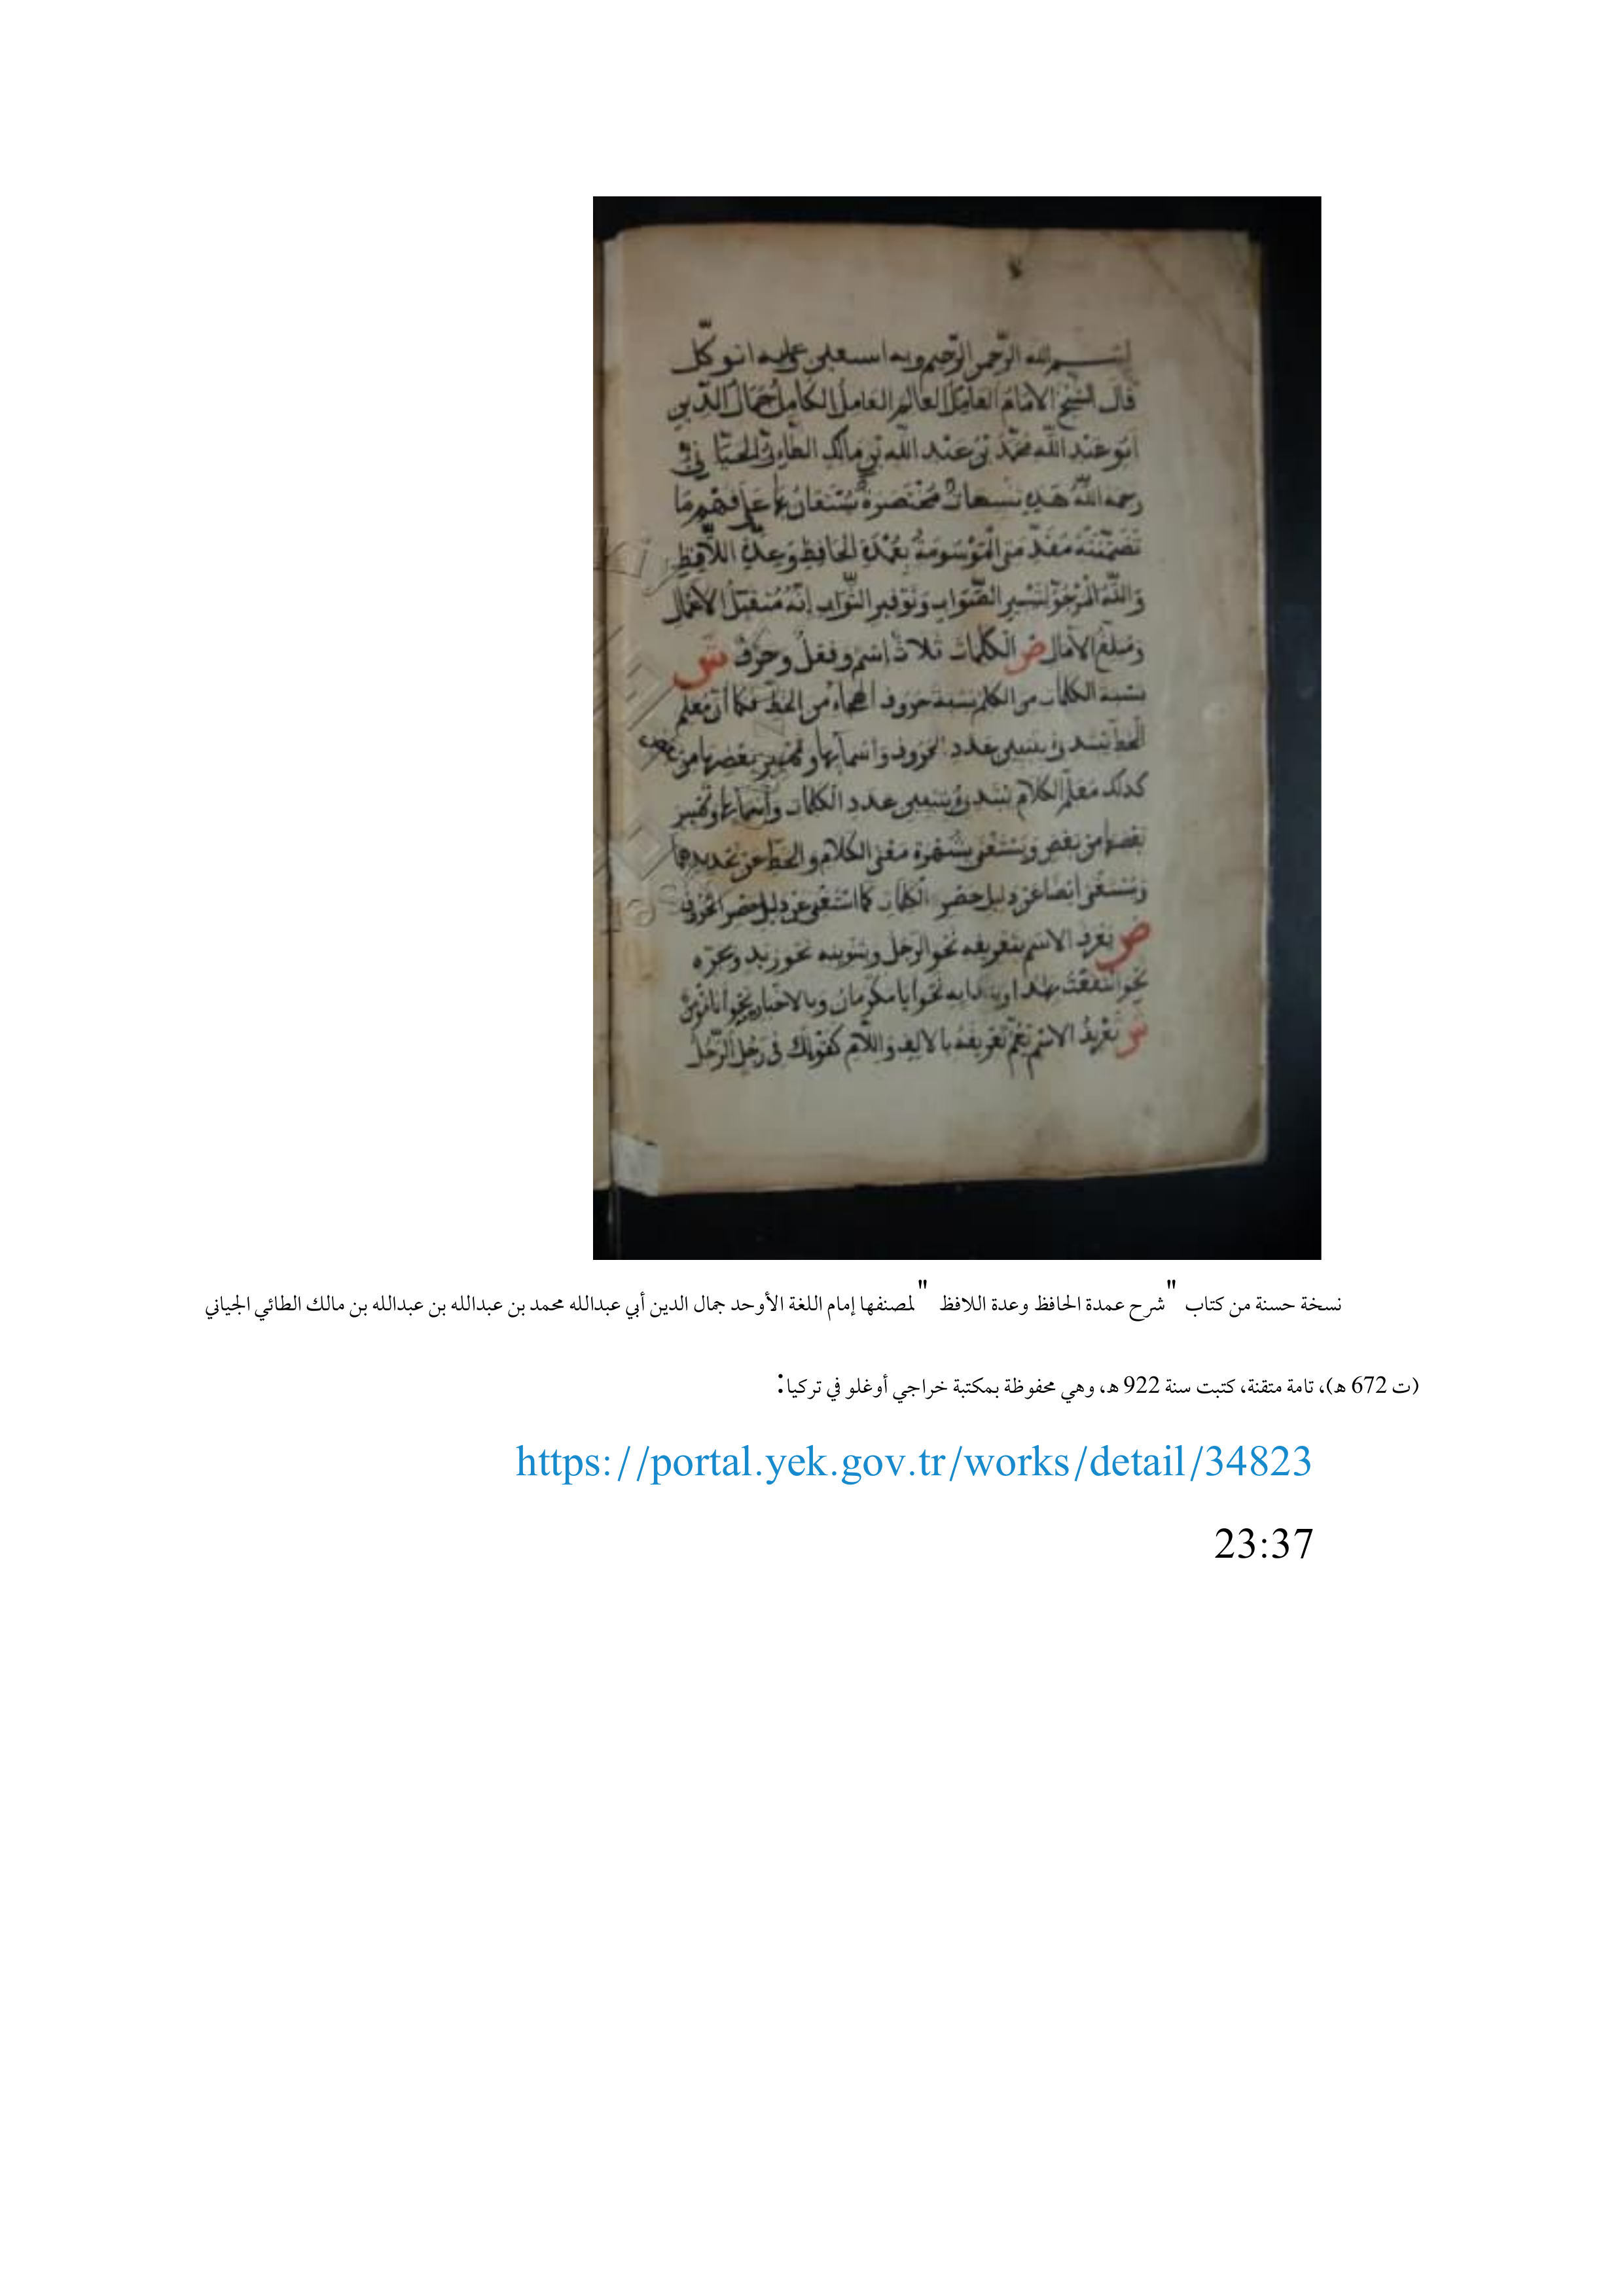 بسم الله الرحمن الرحيم وبه استعين وعليه اتوكل
قال الشيخ الامام الفاضل العالم العامل الكامل جمال الدين
ابو عبد الله محمد بن عبد الله بن مالك الطاوي الجياني
رحمه الله هذه تنبيهات مختصرة يستعان بها على فهم ما
تضمنته مقدمتي الموسومة بعمدة الحافظ وعدة اللافظ
والله المرجو لتيسير الصواب وتوفير الثواب انه متقبل الاعمال
ومبلغ الآمال ص الكلمات ثلاث اسم وفعل وحرف ش
نسبة الكلمات من الكلم نسبة حروف الهجاء من الخط فكما ان معلم
الخط يبتدئ بتبيين عدد الحروف واسمآئها وتمييز بعضها من بعض
كذلك معلم الكلام يبتدئ بتبيين عدد الكلمات واسمائها وتمييز
بعضها من بعض ويستغنى بشهرة معنى الكلام والخط عن تحديدهما
ويستغنى ايضا عن دليل حصر الكلمات كما استغنى عن دليل حصر الحروف
ص يعرف الاسم بتعريفه نحو الرجل وبتنوينه نحو زيد وبجره
نحو انتفعت بهذا وبندايه نحو ايا مكرمان وبالاخبار نحو انا مؤمن
ش تعريف الاسم يعم تعريفه بالالف واللام كقولك في رجل الرجل
نسخة حسنة من كتاب "شرح عمدة الحافظ وعدة اللافظ" لمصنفها إمام اللغة الأوحد جمال الدين أبي عبدالله محمد بن عبدالله بن عبدالله بن مالك الطائي الجياني
(ت 672 هـ)، تامة متقنة، كتبت سنة 922 هـ، وهي محفوظة بمكتبة خراجي أوغلو في تركيا:
https://portal.yek.gov.tr/works/detail/34823
23:37